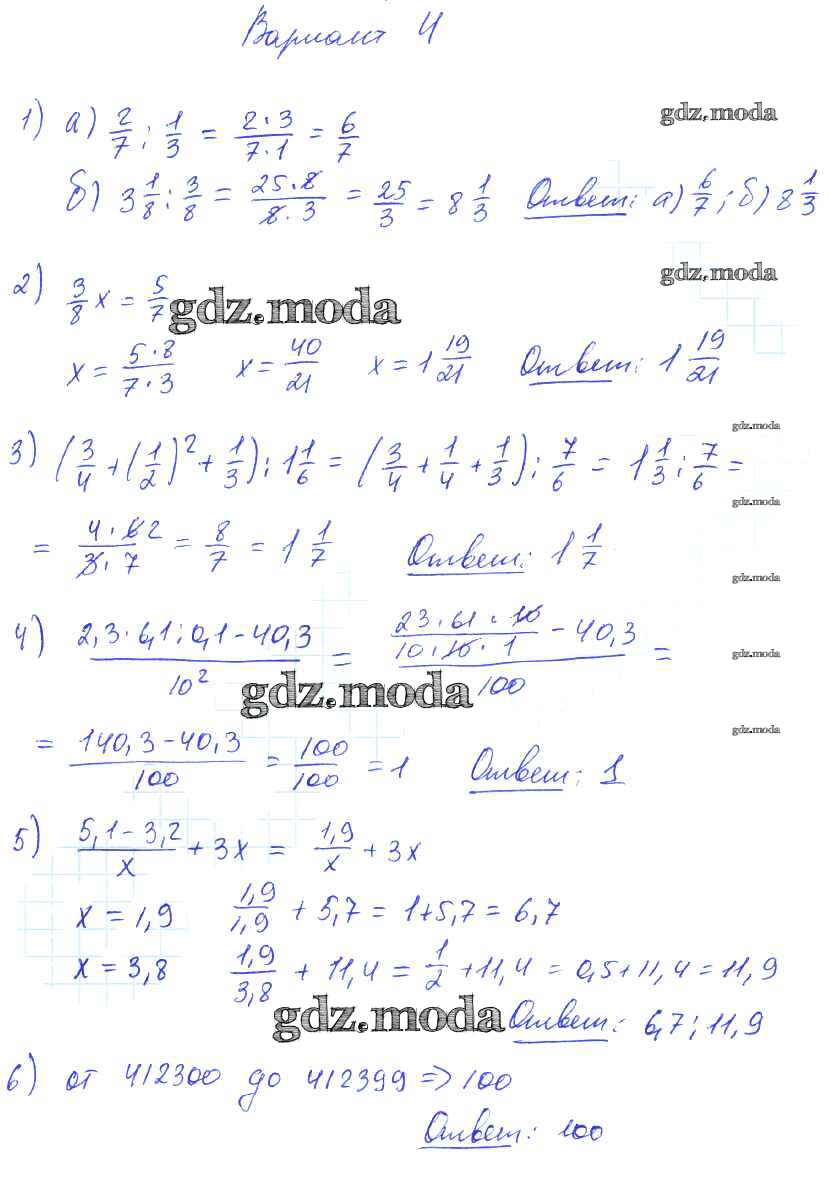 Вариант 4
1) а) 2/7 : 1/3 = 2·3/7·1 = 6/7
gdz.moda
б) 3 1/8 : 3/8 = 25·8/8·3 = 25/3 = 8 1/3 Ответ: а) 6/7; б) 8 1/3
2) 3/8 x = 5/7
gdz.moda
gdz.moda
x = 5·8/7·3 x = 40/21 x = 1 19/21 Ответ: 1 19/21
gdz.moda
3) (3/4 + (1/2)² + 1/3) : 1 1/6 = (3/4 + 1/4 + 1/3) : 7/6 = 1 1/3 : 7/6 =
gdz.moda
= 4·6 2/3·7 = 8/7 = 1 1/7 Ответ: 1 1/7
gdz.moda
4) 2,3·6,1:0,1-40,3/10² = 23·61·10/10·10·1 - 40,3/100 =
gdz.moda
gdz.moda
gdz.moda
= 140,3-40,3/100 = 100/100 = 1 Ответ: 1
5) 5,1-3,2/x + 3x = 1,9/x + 3x
x = 1,9 1,9/1,9 + 5,7 = 1+5,7 = 6,7
x = 3,8 1,9/3,8 + 11,4 = 1/2 + 11,4 = 0,5+11,4 = 11,9
gdz.moda
Ответ: 6,7; 11,9
6) от 412300 до 412399 => 100
Ответ: 100